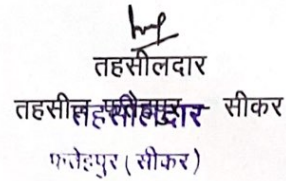 तहसीलदार
तहसील फतेहपुर सीकर
तहसीलदार
फतेहपुर (सीकर)